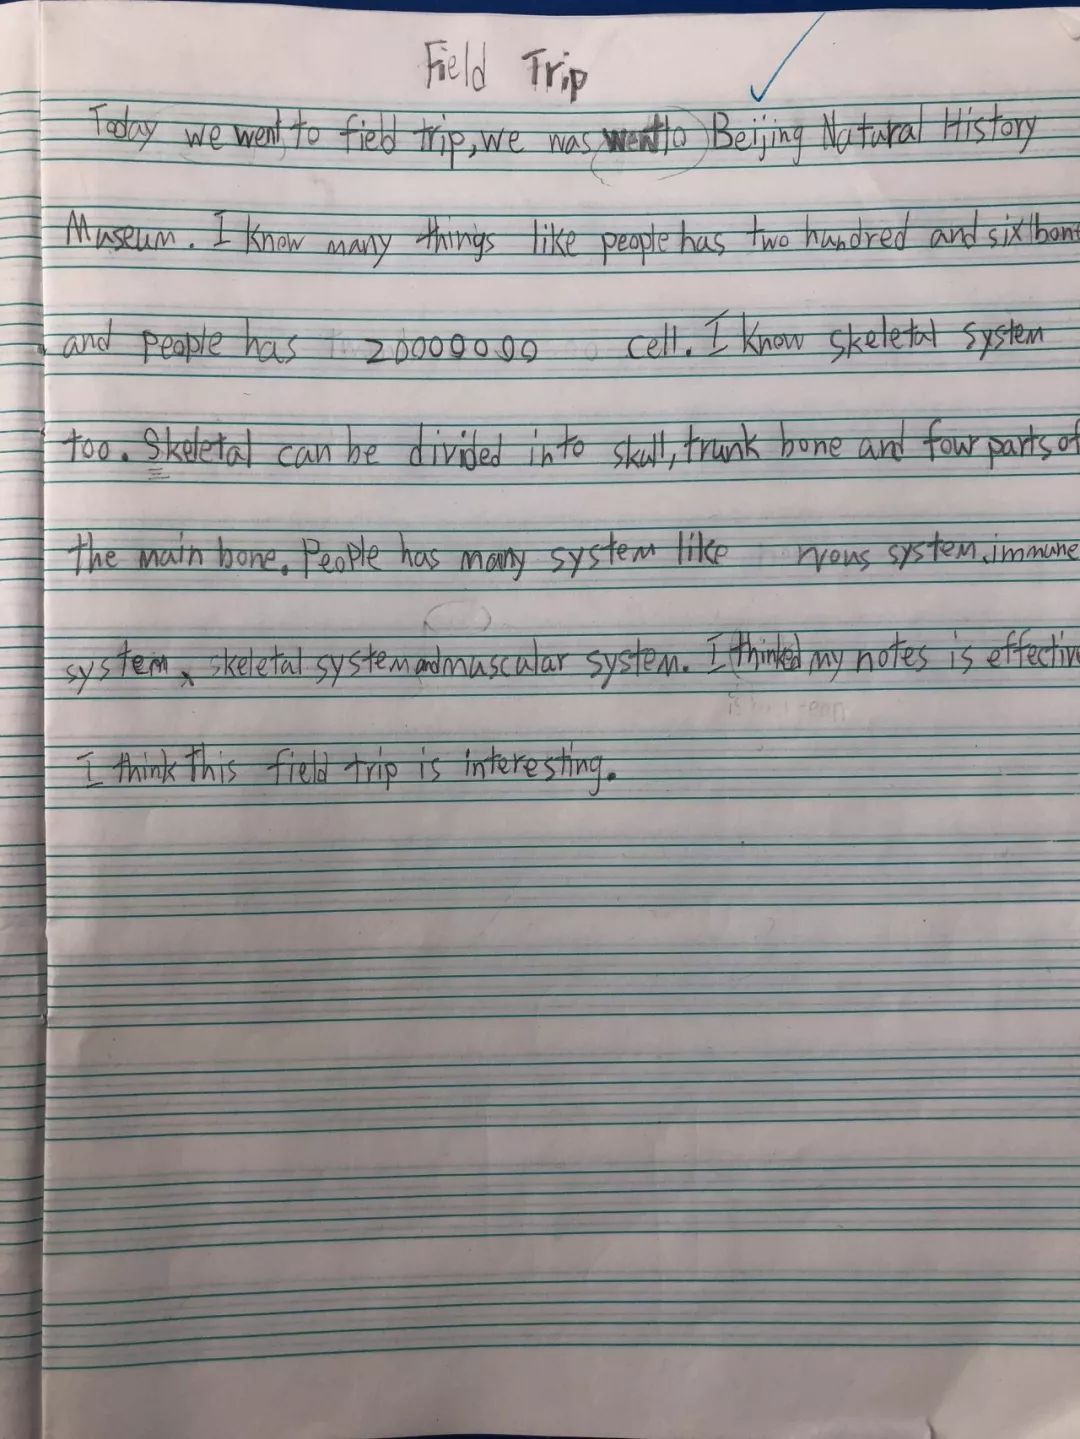 Field Trip
Today we went to field trip, we was went to Beijing Natural History
Museum. I know many things like people has two hundred and six bone
and people has 20000000 cell. I know skeletal system
too. Skeletal can be divided into skull, trunk bone and four parts of
the main bone. People has many system like system, immune
system、skeletal system and muscular system. I thinked my notes is effectiv
I think this field trip is interesting.